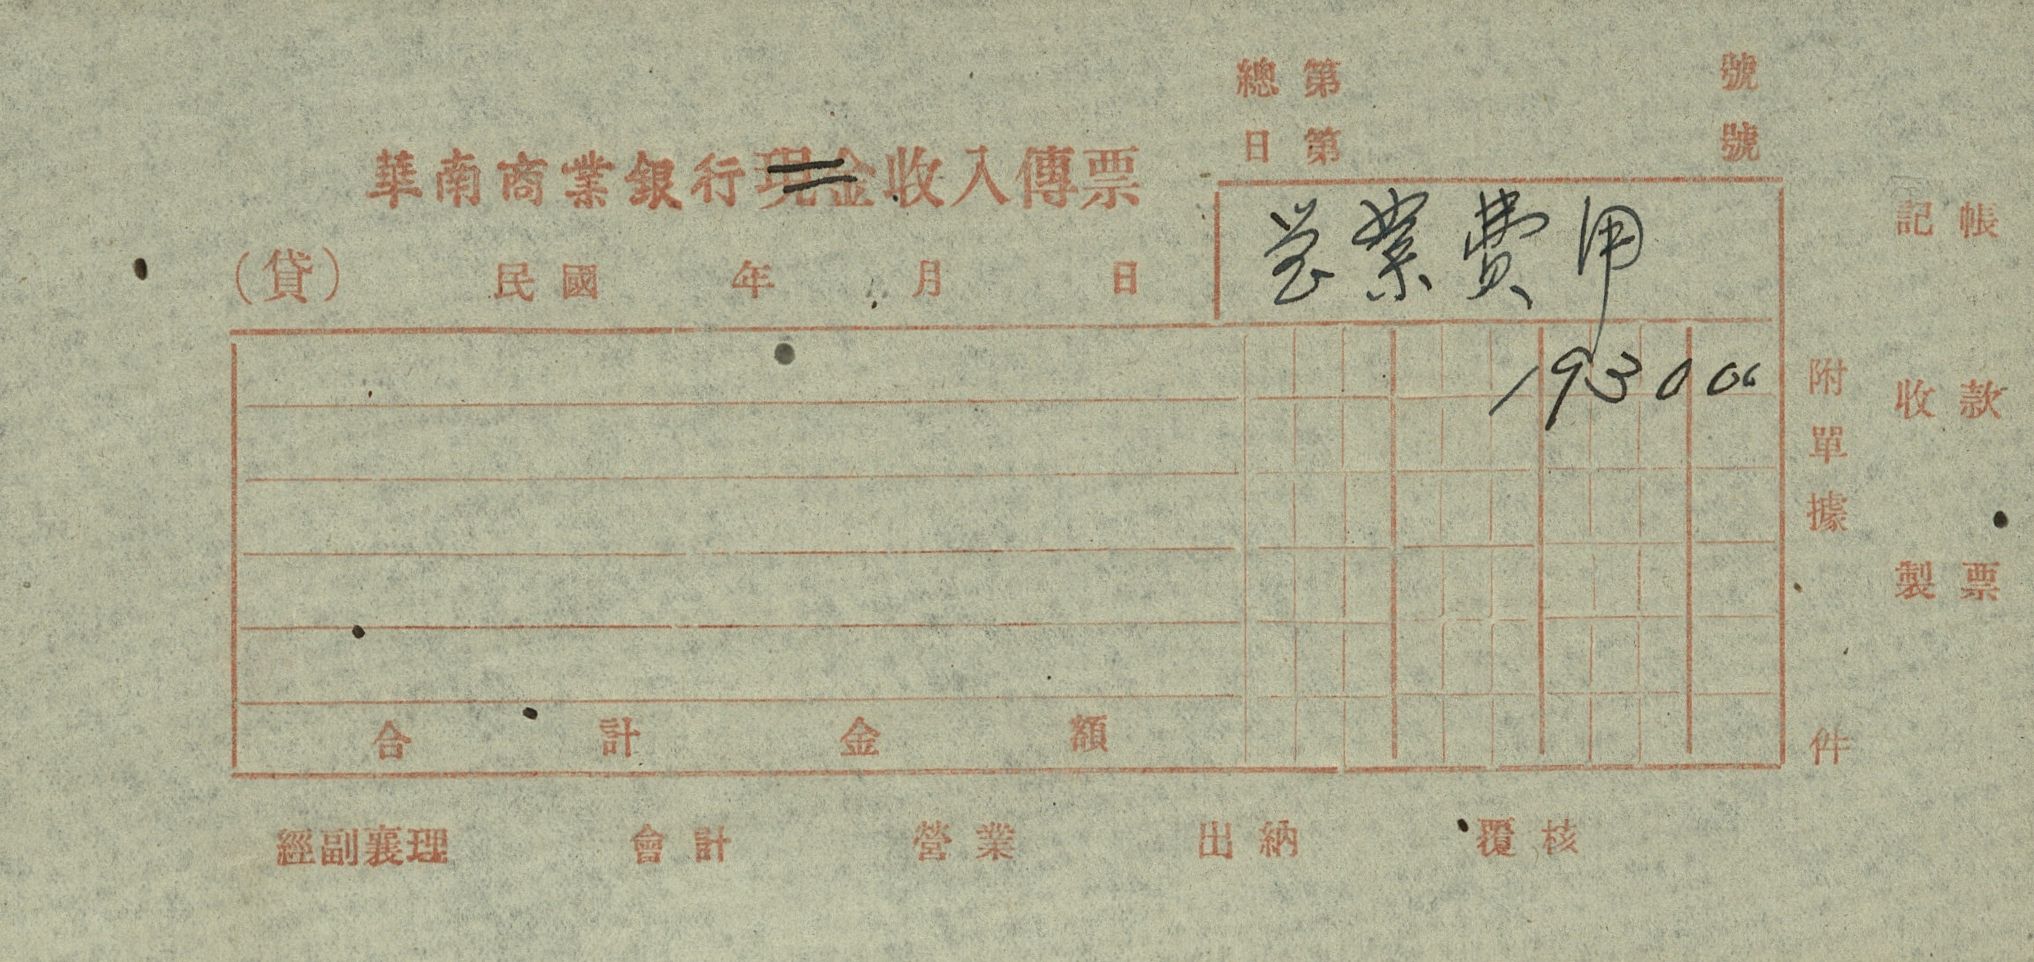 總第 號
日第 號
華南商業銀行現金收入傳票
(貸) 民國 年 月 日
營業費用
193000
合計金額
附單據 件
記帳
收款
製票
經副襄理 會計 營業 出納 覆核